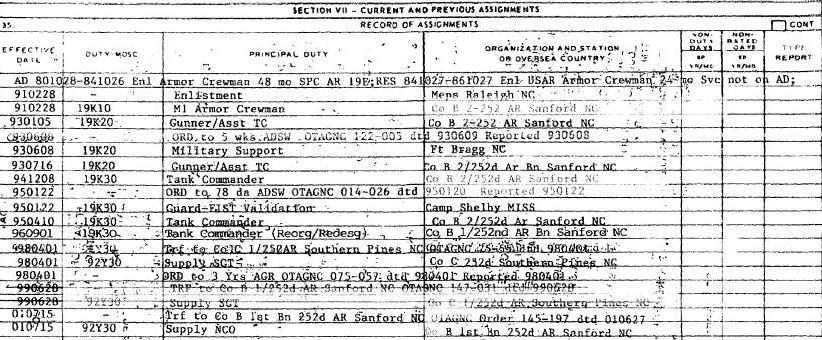 SECTION VII - CURRENT AND PREVIOUS ASSIGNMENTS
35. RECORD OF ASSIGNMENTS CONT
EFFECTIVE DATE DUTY MOSC PRINCIPAL DUTY ORGANIZATION AND STATION OR OVERSEA COUNTRY NON-DUTY DAYS NON-RATED DAYS TYPE REPORT
AD 801028-841026 Enl Armor Crewman 48 mo SPC AR 19E;RES 841027-861027 Enl USAR Armor Crewman 24 mo Svc not on AD;
910228 - Enlistment Meps Raleigh NC
910228 19K10 M1 Armor Crewman Co B 2-252 AR Sanford NC
930105 19K20 Gunner/Asst TC Co B 2-252 AR Sanford NC
930608 - ORD to 5 wks ADSW OTAGNC 122-005 dtd 930609 Reported 930608
930608 19K20 Military Support Ft Bragg NC
930716 19K20 Gunner/Asst TC Co B 2/252d Ar Bn Sanford NC
941208 19K30 Tank Commander Co B 2/252d AR Sanford NC
950122 - ORD to 78 da ADSW OTAGNC 014-026 dtd 950120 Reported 950122
950122 19K30 Guard-FIST Validation Camp Shelby MISS
950410 19K30 Tank Commander Co B 2/252d Ar Sanford NC
960901 19K30 Tank Commander (Reorg/Redesg) Co B 1/252nd AR Bn Sanford NC
980401 92Y30 Trf to Co C 1/252AR Southern Pines NC OTAGNC 980401
980401 92Y30 Supply SGT Co C 252d Southern Pines NC
980401 ORD to 3 Yrs AGR OTAGNC 075-057 dtd 980401 Reported 980401
990628 - TRF to Co B 1/252d AR Sanford NC OTAGNC 147-031 dtd 990628
990628 92Y30 Supply SGT Co C 1/252d AR Southern Pines NC
010715 - Trf to Co B 1st Bn 252d AR Sanford NC OTAGNC Order 145-197 dtd 010627
010715 92Y30 Supply NCO Co B 1st Bn 252d AR Sanford NC